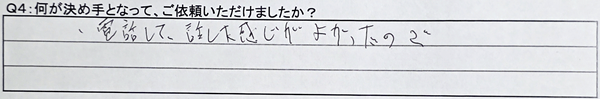 Q4:何が決め手となって、ご依頼いただけましたか?
・電話して、話した感じがよかったので